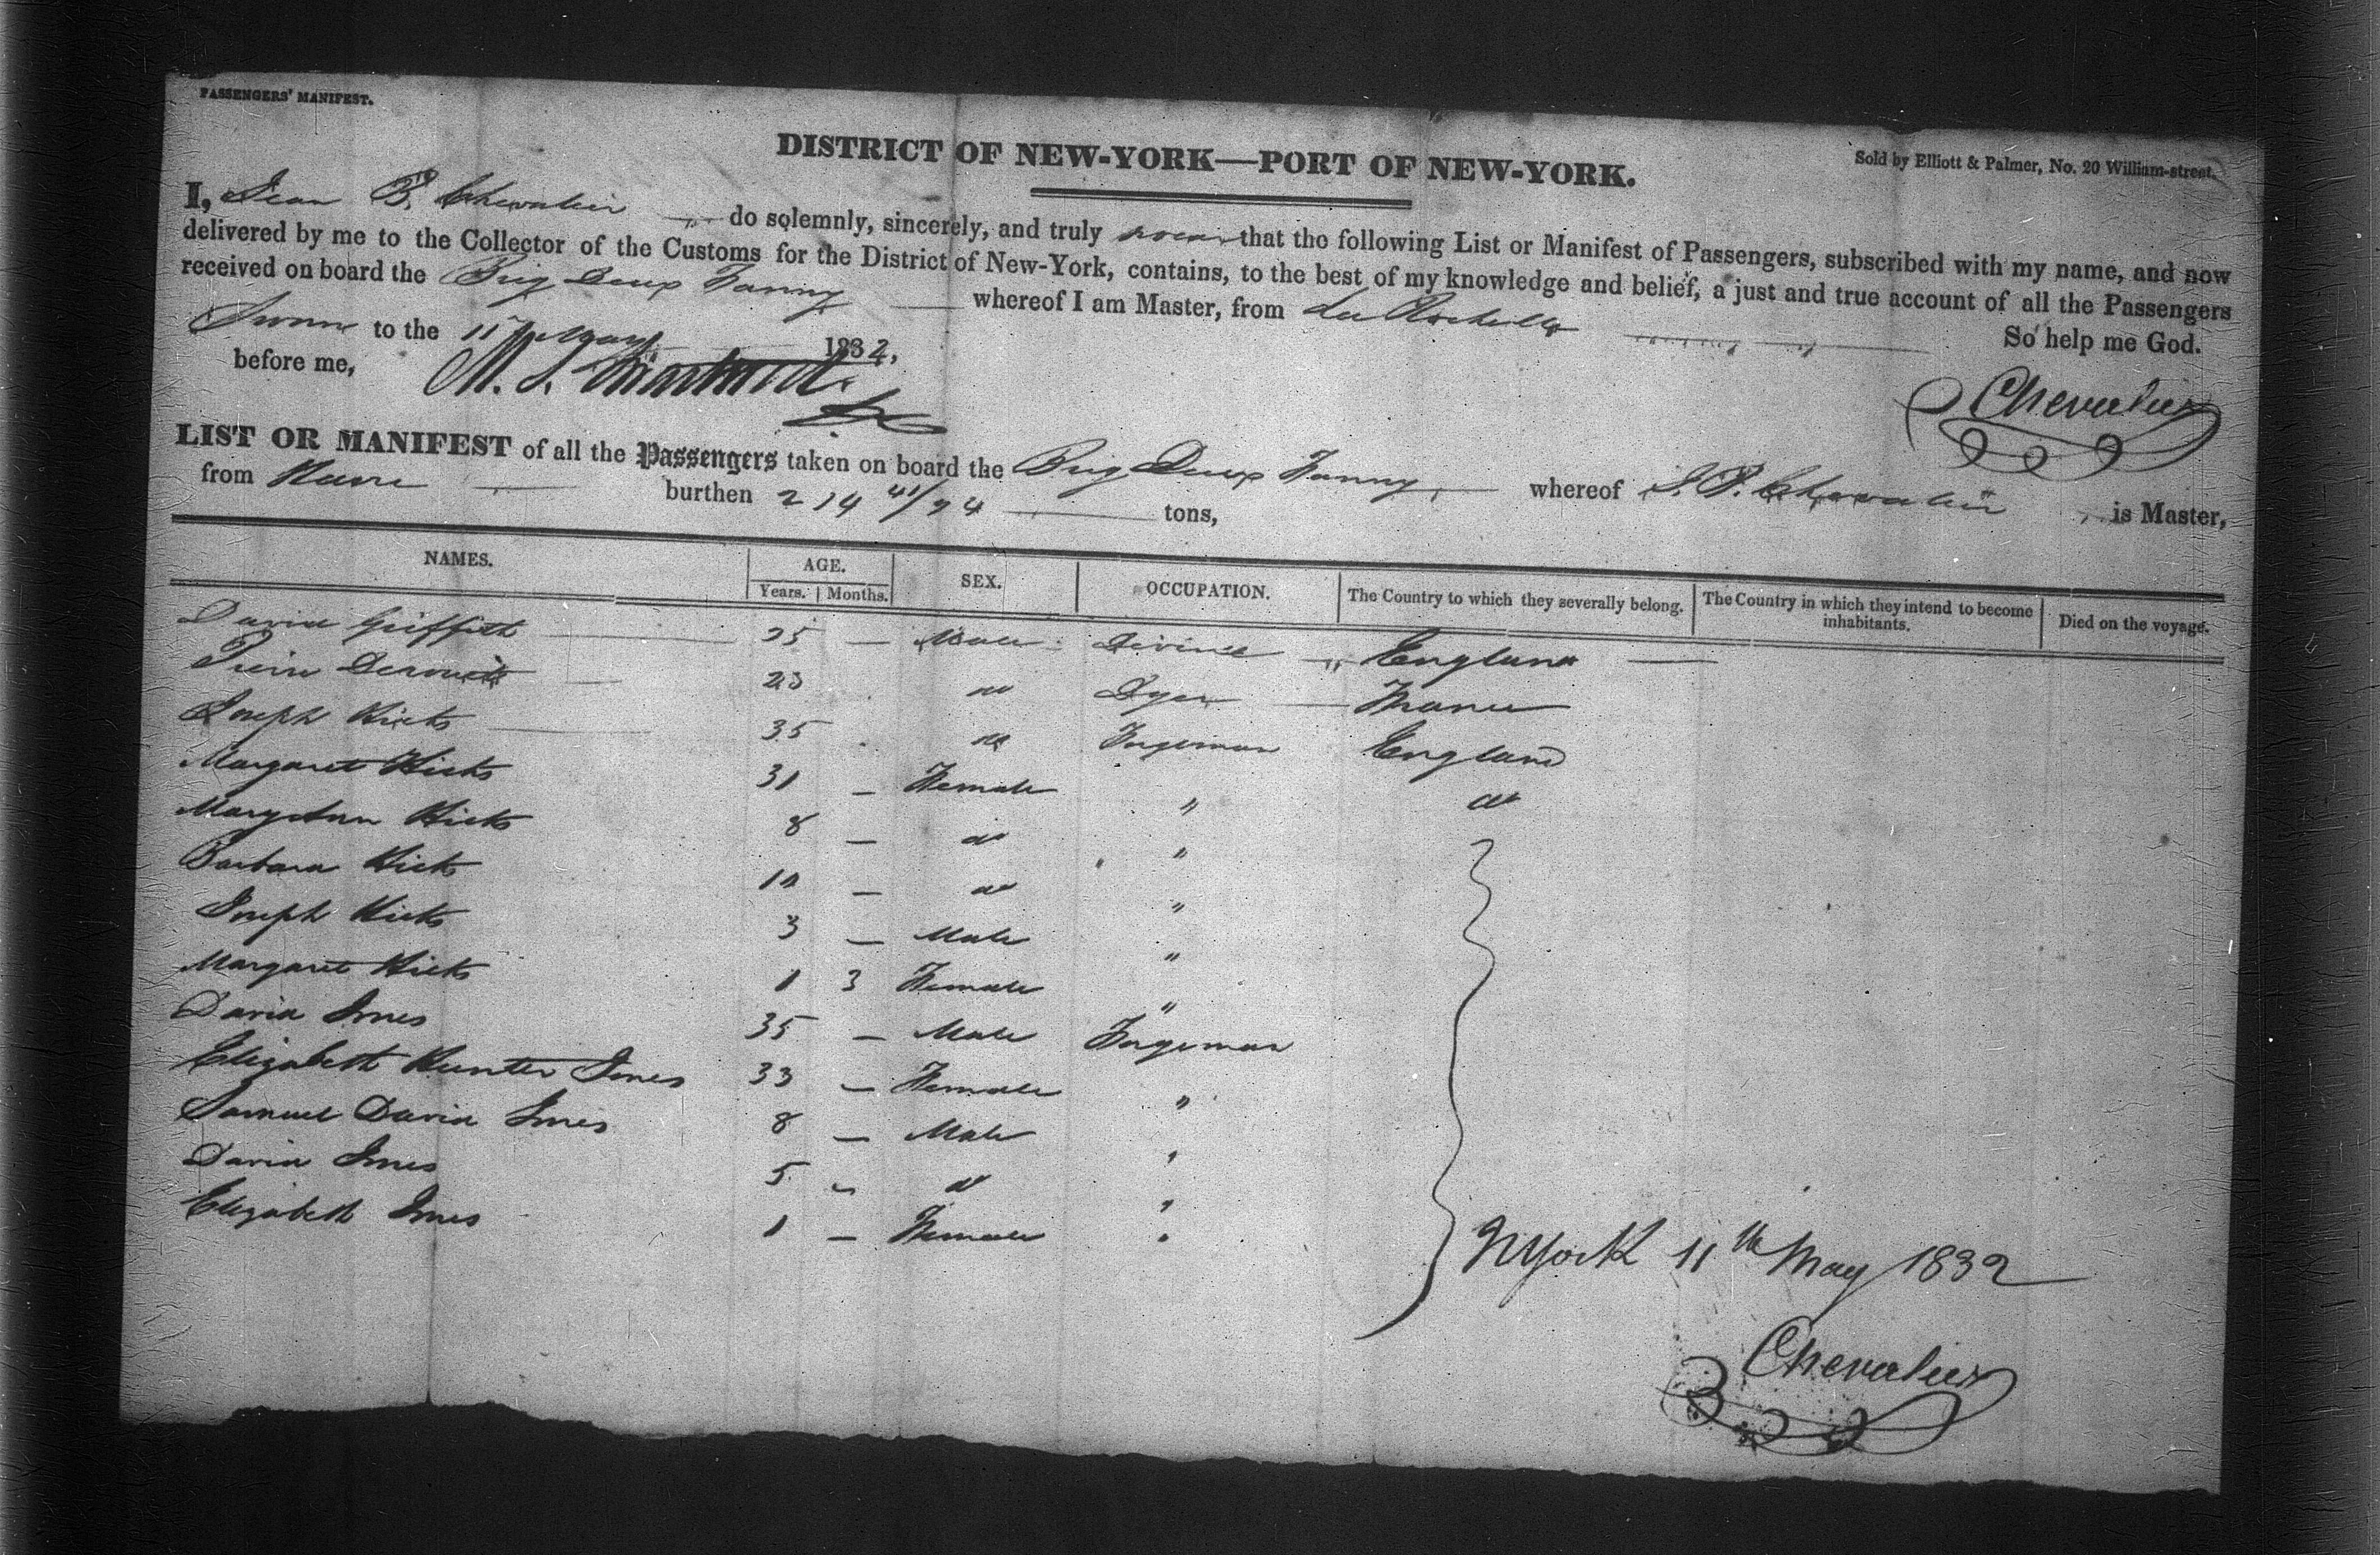 PASSENGERS' MANIFEST.
DISTRICT OF NEW-YORK—PORT OF NEW-YORK.
Sold by Elliott & Palmer, No. 20 William-street.
I, Jean B. Chevalier do solemnly, sincerely, and truly swear that the following List or Manifest of Passengers, subscribed with my name, and now
delivered by me to the Collector of the Customs for the District of New-York, contains, to the best of my knowledge and belief, a just and true account of all the Passengers
received on board the Brig Deux Fanny whereof I am Master, from La Rochelle
Sworn to the 11 May 1832, So help me God.
before me,
Chevalier
LIST OR MANIFEST of all the Passengers taken on board the Brig Deux Fanny, whereof J. B. Chevalier is Master,
from burthen 214 41/94 tons,
NAMES. AGE. SEX. OCCUPATION. The Country to which they severally belong. The Country in which they intend to become inhabitants. Died on the voyage.
Years. Months.
David Griffith 25 — Male Divine " England
23 do Dyer France
Joseph Hicks 35 do Forgeman England
Margaret Hicks 31 — Female " do
Mary Ann Hicks 8 — do "
Barbara Hicks — do "
Joseph Hicks 3 — Male "
Margaret Hicks 1 3 Female "
David Jones 35 — Male Forgeman
Elizabeth Hunter Jones 33 — Female "
Samuel David Jones 8 — Male "
David Jones 5 — do "
Elizabeth Jones 1 — Female "
NYork 11th May 1832
Chevalier